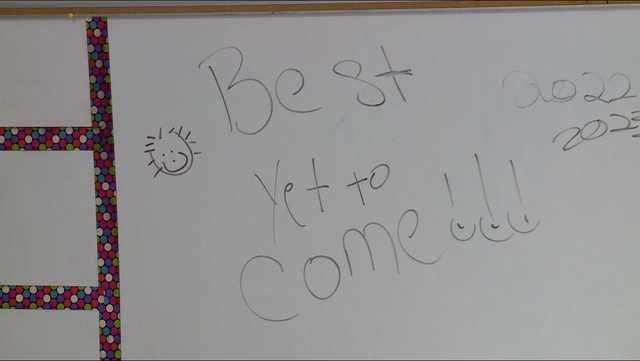 Best
Yet to
Come!!!
2022
2023